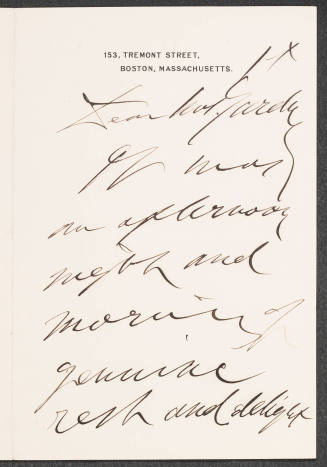 153, TREMONT STREET,
BOSTON, MASSACHUSETTS.
Dear Mrs Gardner
It was
an afternoon
night and
morning of
genuine
rest and delight